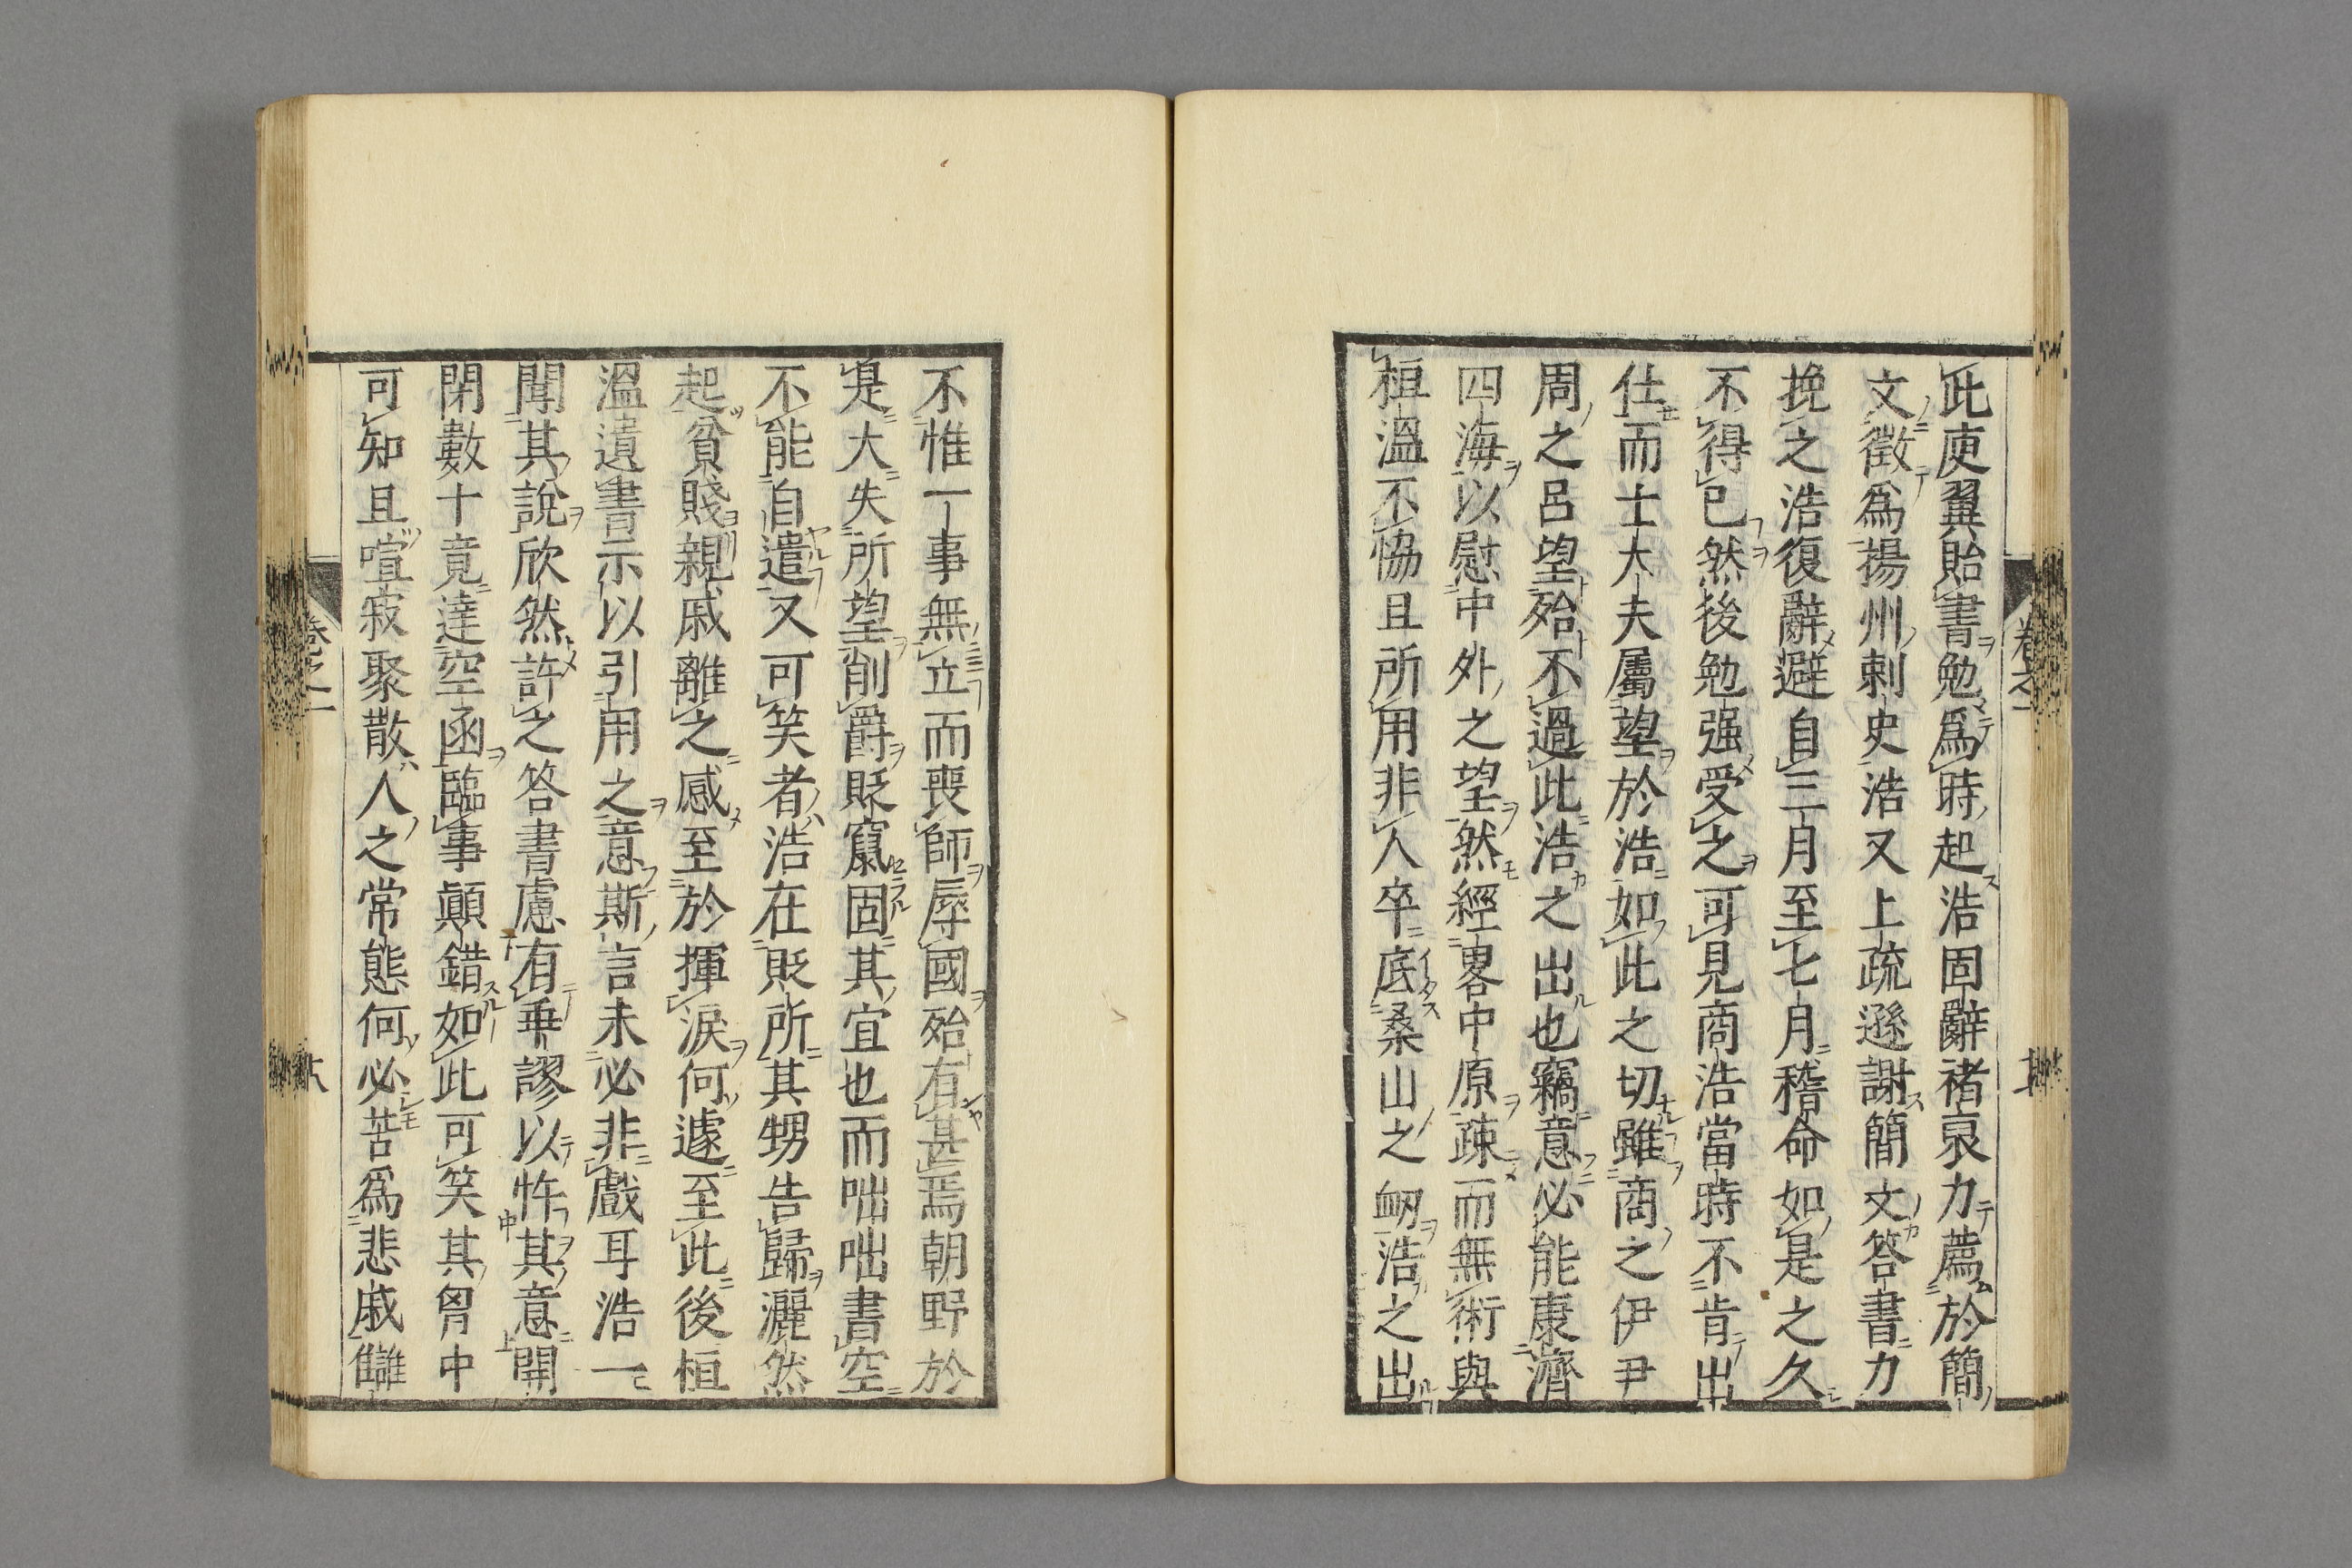 此庾翼貽書勉爲時起浩固辭褚裒力薦於簡
文徵爲揚州刺史浩又上疏遜謝簡文答書力
挽之浩復辭避自三月至七月稽命如是之久
不得已然後勉强受之可見商浩當時不肯出
仕而士大夫屬望於浩如此之切雖商之伊尹
周之呂望殆不過此浩之出也竊意必能康濟
四海以慰中外之望然經畧中原疎而無術與
桓溫不恊且所用非人卒底桑山之衂浩之出
不惟一事無立而喪師辱國殆有甚焉朝野於
是大失所望削爵貶竄固其宜也而咄咄書空
不能自遣又可笑者浩在貶所其甥告歸灑然
起貧賤親戚離之感至於揮淚何遽至此後桓
溫遺書示以引用之意斯言未必非戲耳浩一
聞其說欣然許之答書慮有乖謬以忤其意開
閉數十竟達空函臨事顚錯如此可笑其胷中
可知且喧寂聚散人之常態何必苦爲悲戚讎